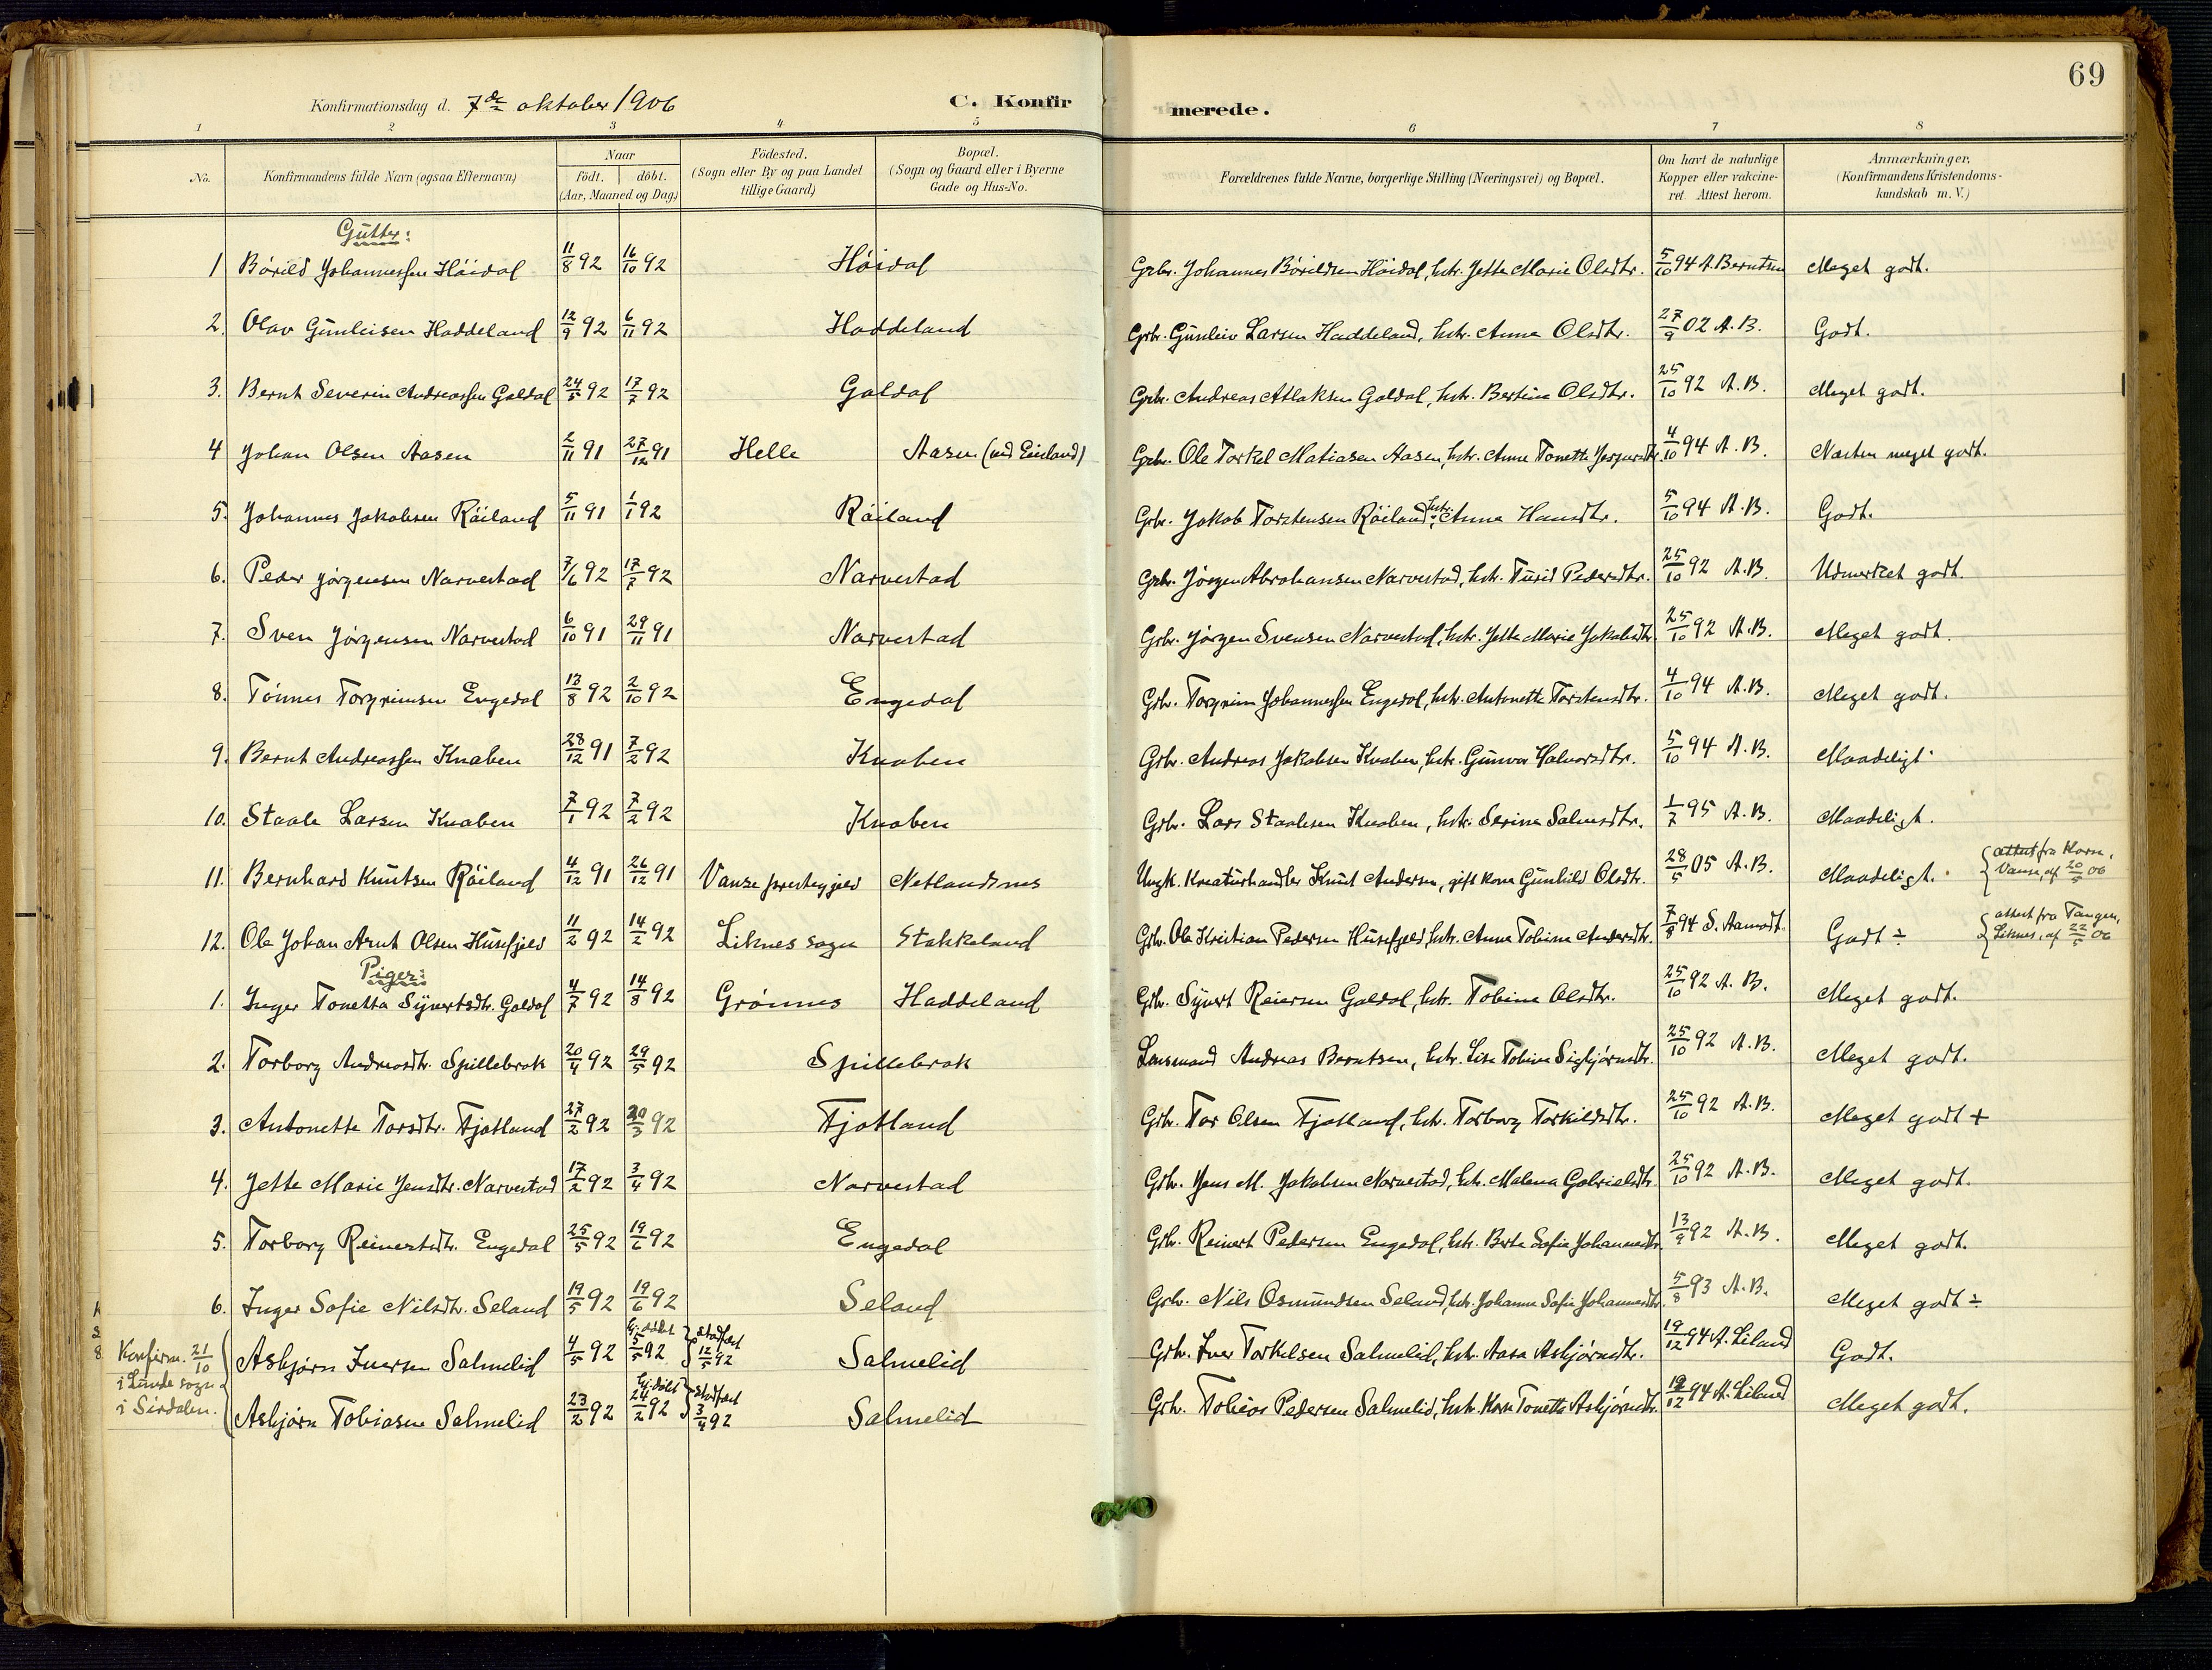 69
Konfirmationsdag d. 7de oktober 1906
C. Konfirmerede.
1 2 3 4 5 6 7 8
No. Konfirmandens fulde Navn (ogsaa Efternavn) Naar födt. döbt. (Aar, Maaned og Dag) Födested. (Sogn eller By og paa Landet tillige Gaard) Bopæl. (Sogn og Gaard eller i Byerne Gade og Hus-No. Forældrenes fulde Navne, borgerlige Stilling (Næringsvei) og Bopæl. Om havt de naturlige Kopper eller vakcineret Attest herom. Anmærkninger. (Konfirmandens Kristendomskundskab m. V.)
Gutter:
1 Bórild Johannessen Hóidal 11/8 92 16/10 92 Hóidal Grbr. Johannes Bórildsen Hóidal, hstr. Jette Marie Olsdtr. 5/10 94 A. Berntsen Meget godt.
2. Olav Gunleisen Haddeland 12/9 92 6/11 92 Haddeland Grbr. Gunleiv Larsen Haddeland, hstr. Anna Olsdtr. 27/9 02 A. B. Godt.
3. Bernt Severin Andreassen Galdal 24/5 92 17/7 92 Galdal Grbr. Andreas Atlaksen Galdal, hstr. Bertine Olsdtr. 25/10 92 A. B. Meget godt.
4 Johan Olsen Aasen 2/11 91 27/12 91 Helle Aasen (und Eiland) Grbr. Ole Torkel Matiasen Aasen, hstr. Anne Tonette Jespersdtr. 4/10 94 A. B. Næsten meget godt.
5. Johannes Jakobsen Róiland 5/11 91 1/1 92 Róiland Grbr. Jakob Torstensen Róiland, hstr. Anna Hansdtr. 5/10 94 A. B. Godt.
6. Peder Jórgensen Narvestad 7/6 92 17/7 92 Narvestad Grbr. Jórgen Abrahamsen Narvestad, hstr. Turid Pedersdtr. 25/10 92 A. B. Udmerket godt.
7. Sven Jórgensen Narvestad 6/10 91 29/11 91 Narvestad Grbr. Jórgen Svensen Narvestad, hstr. Jette Marie Jakobsdtr. 25/10 92 A. B. Meget godt.
8. Tónnes Torgrimsen Engedal 13/8 92 2/10 92 Engedal Grbr. Torgrim Johannessen Engedal, hstr. Antonette Torstensdtr. 4/10 94 A. B. Meget godt.
9. Bernt Andreassen Knaben 28/12 91 7/2 92 Knaben Grbr. Andreas Jakobsen Knaben, hstr. Gunvor Halvorsdtr. 5/10 94 A. B. Maadeligt.
10. Staale Larsen Knaben 7/1 92 7/2 92 Knaben Grbr. Lars Staalesen Knaben, hstr. Serine Salvesdtr. 1/7 95 A. B. Maadeligt.
11. Bernhard Knutsen Róiland 4/12 91 26/12 91 Vanse prestegjeld Netlandsnes Ungk. Kreaturhandler Knut Andersen, gift kone Gunhild Olsdtr. 28/5 05 A. B. Maadeligt. attest fra Korn. Vanse, af 20/5 06
12. Ole Johan Arnt Olsen Husefjeld 11/2 92 14/2 92 Liknes sogn Stakkeland Grbr. Ole Kristian Pedersen Husefjeld, hstr. Anna Tobine Andersdtr. 7/8 94 S. Aamodt. Godt ÷ attest fra Tangen, Liknes, af 22/5 06
Piger:
1. Inger Tonetta Syvertsdtr. Galdal 4/7 92 14/8 92 Grónnes Haddeland Grbr. Syvert Reiersen Galdal, hstr. Tobine Olsdtr. 25/10 92 A. B. Meget godt.
2. Torborg Andreasdtr. Spillebrok 20/4 92 29/5 92 Spillebrok Lensmand Andreas Berntsen, hstr. Lise Tobine Sigbjórnsdtr. 25/10 92 A. B. Meget godt.
3. Antonette Torsdtr. Fjotland 27/2 92 20/3 92 Fjotland Grbr. Tor Olsen Fjotland, hstr. Torborg Torkildsdtr. 25/10 92 A. B. Meget godt +
4. Jette Marie Jensdtr. Narvestad 17/2 92 3/4 92 Narvestad Grbr. Jens M. Jakobsen Narvestad, hstr. Malena Gabrielsdtr. 25/10 92 A. B. Meget godt.
5. Torborg Reinertsdtr. Engedal 25/5 92 19/6 92 Engedal Grbr. Reinert Pedersen Engedal, hstr. Berte Sofie Johannesdtr. 13/9 92 A. B. Meget godt.
6. Inger Sofie Nilsdtr. Seland 19/5 92 19/6 92 Seland Grbr. Nils Osmundsen Seland, hstr. Johanne Sofie Johannesdtr. 5/8 93 A. B. Meget godt ÷
Konfirm. 21/10 i Lunde sogn i Sirdalen.
Asbjórn Iversen Salmelid 4/5 92 hj. dóbt 5/5 92 stadfæst 12/5 92 Salmelid Grbr. Iver Torkelsen Salmelid, hstr. Aasa Asbjórnsdtr. 19/12 94 A. Liland Godt.
Asbjórn Tobiasen Salmelid 23/2 92 hj. dóbt 24/2 92 stadfæst 3/4 92 Salmelid Grbr. Tobias Pedersen Salmelid, hstr. Karn Tonette Asbjórnsdtr. 19/12 94 A. Liland Meget godt.